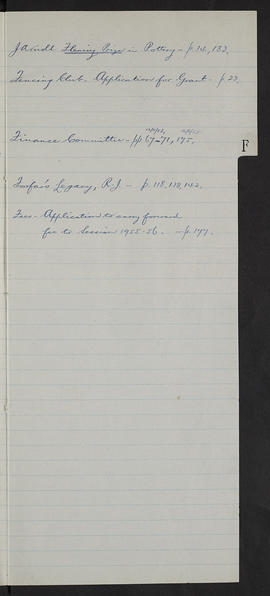 J Arnold Fleming Prize in Pottery - p.14, 132.
Fencing Club - Application for Grant - p 23.
Finance Committee - pp 67-71, 175.
F
Legacy, R.J. - p. 118, 138, 142.
Fees - Application to carry forward
fee to Session 1955-56. - p.177.